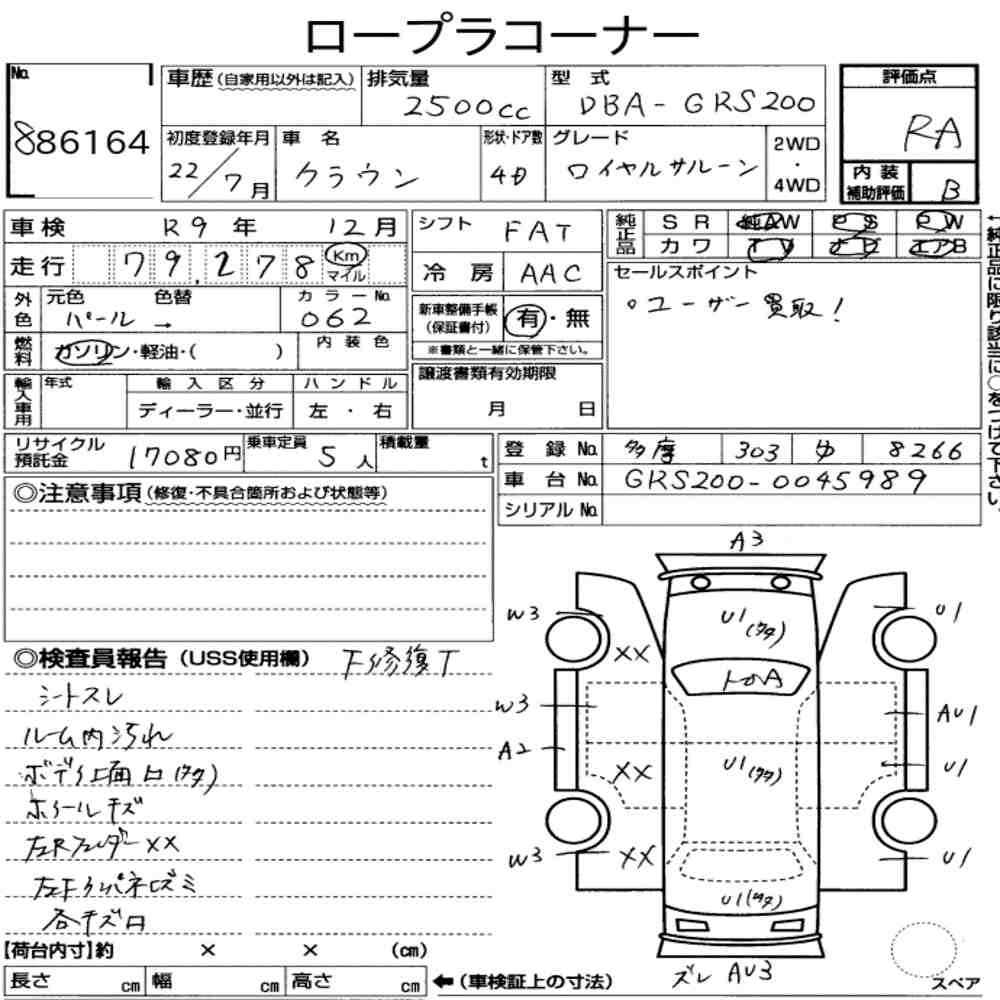 ロープラコーナー
No.
886164
車歴(自家用以外は記入) 排気量 2500cc 型式 DBA-GRS200
初度登録年月 22/7月 車名 クラウン 形状・ドア数 4D グレード ロイヤルサルーン 2WD・4WD
評価点
RA
内装補助評価 B
車検 R9年 12月
走行 79,278 Km マイル
外色 元色 パール 色替 → カラーNo. 062
燃料 ガソリン・軽油・( ) 内装色
輸入車用 年式 輸入区分 ハンドル
ディーラー・並行 左・右
シフト FAT
冷房 AAC
新車整備手帳(保証書付) 有・無
※書類と一緒に保管下さい。
譲渡書類有効期限
月 日
純正品 SR 純AW PS PW
カワ TV ナビ エアB
←純正品に限り該当に○をつけて下さい。
セールスポイント
○ユーザー買取!
リサイクル預託金 17080円 乗車定員 5人 積載量 t
登録No. 多摩 303 ゆ 8266
車台No. GRS200-0045989
シリアルNo.
◎注意事項(修復・不具合箇所および状態等)
◎検査員報告(USS使用欄) F修復T
シートスレ
ルーム内汚れ
ボディ上面凹(タタ)
ホイールキズ
左Rフェンダー XX
各キズ凹
【荷台内寸】約 × × (cm)
長さ cm 幅 cm 高さ cm ←(車検証上の寸法)
A3
W3
U1(タタ)
U1
XX
トbA
W3
AU1
A2
XX
U1(タタ)
U1
W3
XX
U1
U1(タタ)
ズレ AU3
スペア